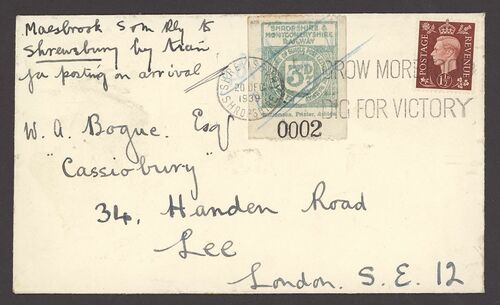 Maesbrook S & M Rly to
Shrewsbury by train
for posting on arrival
SHROPSHIRE &
MONTGOMERYSHIRE
RAILWAY
3D
0002
SHREWSBURY
20 DEC
1939
SHROPSHIRE
POSTAGE
REVENUE
1½D
GROW MORE
DIG FOR VICTORY
W. A. Bogue. Esq
"Cassiobury"
34, Handen Road
Lee
London. S. E. 12